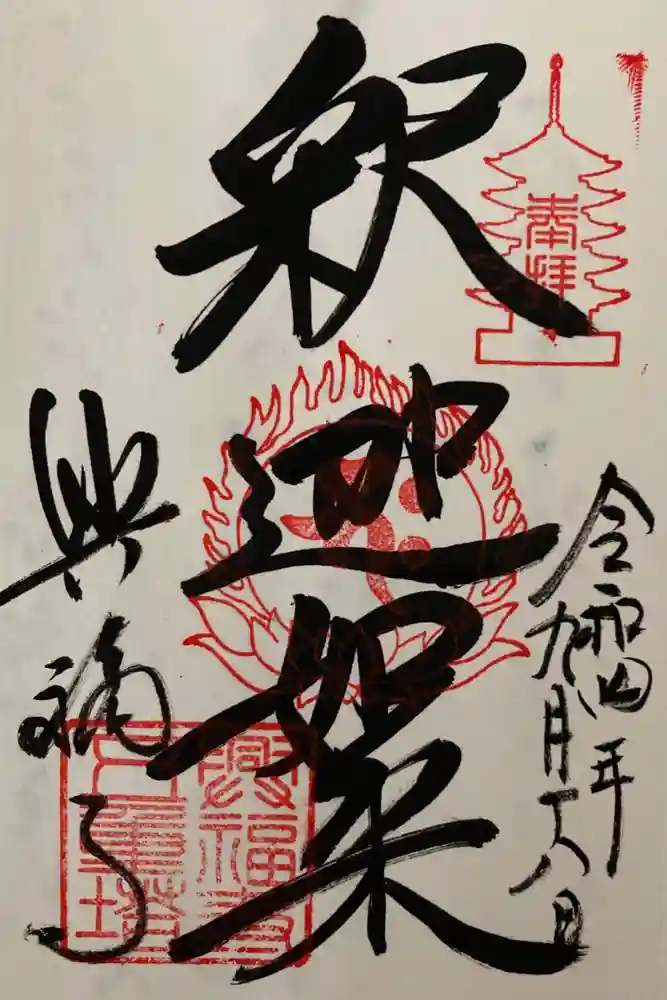 奉拝
令和四年
九月十八日
釈迦如来
興福寺
興福寺
五重塔